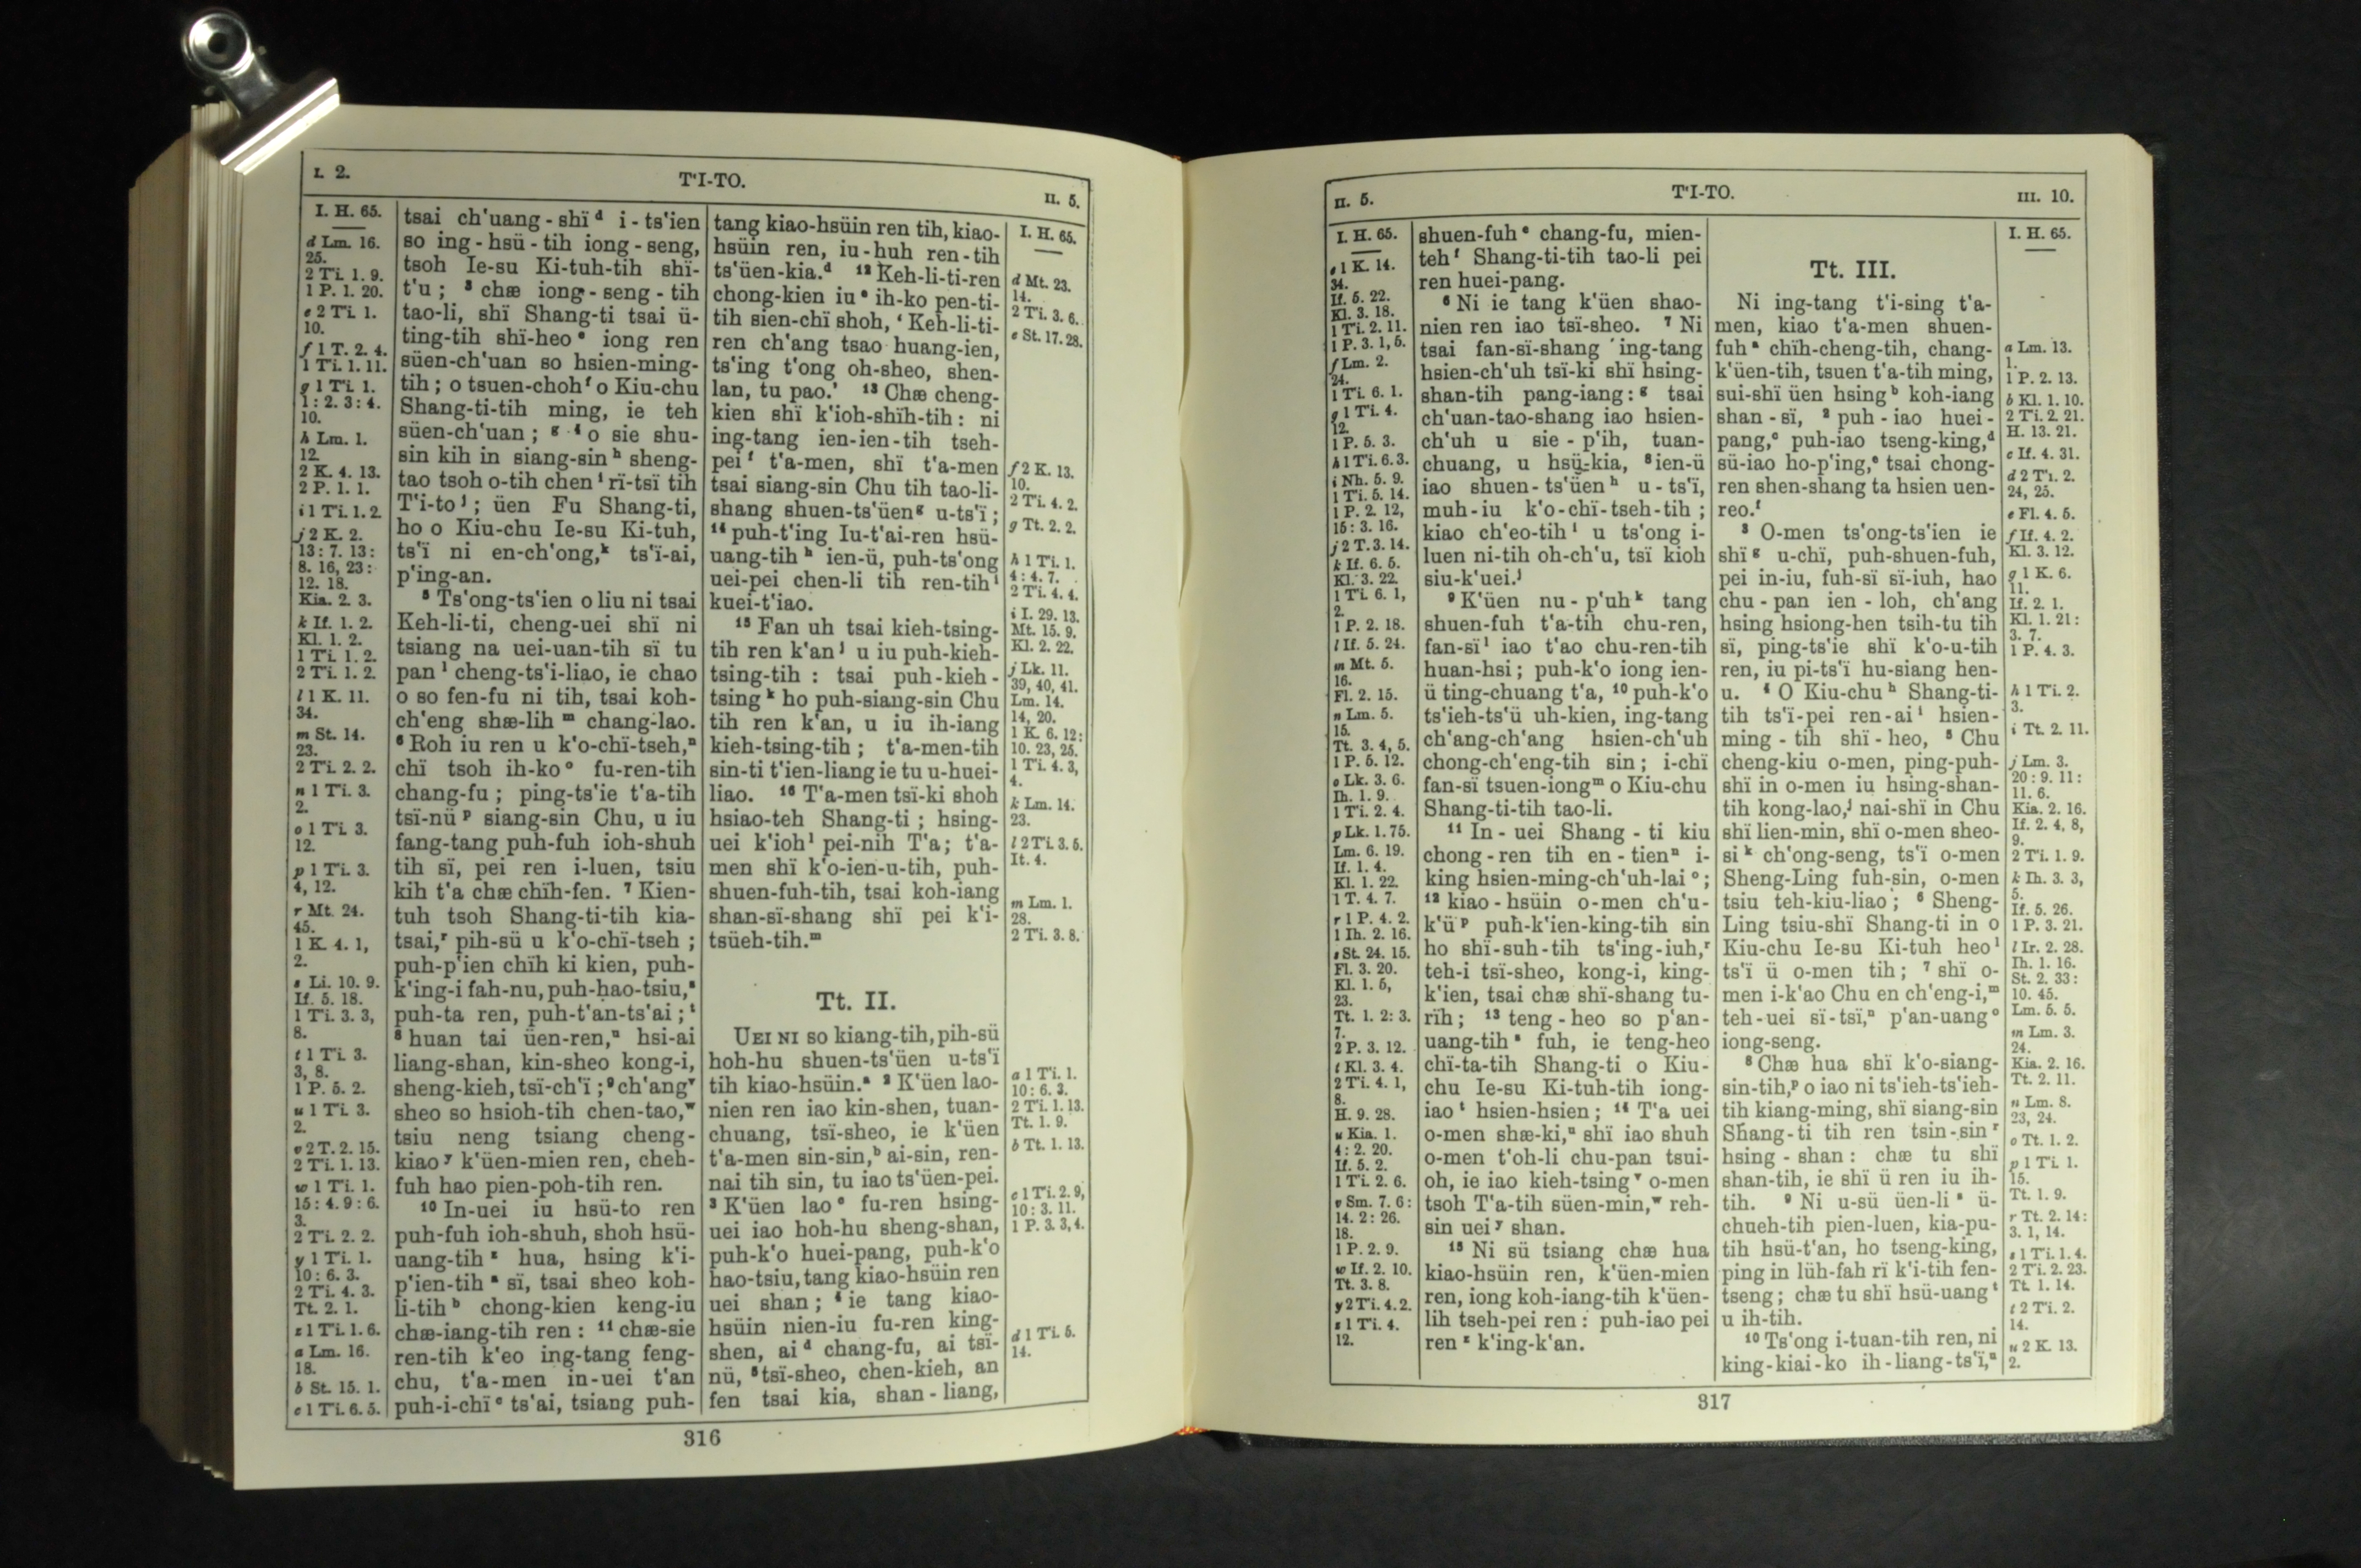 I. 2.
T'I-TO.
II. 5.
I. H. 65.
d Lm. 16.
25.
2 Ti. 1. 9.
1 P. 1. 20.
e 2 Ti. 1.
10.
f 1 T. 2. 4.
1 Ti. 1. 11.
g 1 Ti. 1.
1 : 2. 3 : 4.
10.
h Lm. 1.
12.
2 K. 4. 13.
2 P. 1. 1.
i 1 Ti. 1. 2.
j 2 K. 2.
13 : 7. 13 :
8. 16, 23 :
12. 18.
Kia. 2. 3.
k If. 1. 2.
Kl. 1. 2.
1 Ti. 1. 2.
2 Ti. 1. 2.
l 1 K. 11.
34.
m St. 14.
23.
2 Ti. 2. 2.
n 1 Ti. 3.
2.
o 1 Ti. 3.
12.
p 1 Ti. 3.
4, 12.
r Mt. 24.
45.
1 K. 4. 1,
2.
s Li. 10. 9.
If. 5. 18.
1 Ti. 3. 3,
8.
t 1 Ti. 3.
3, 8.
1 P. 5. 2.
u 1 Ti. 3.
2.
v 2 T. 2. 15.
2 Ti. 1. 13.
w 1 Ti. 1.
15 : 4. 9 : 6.
3.
2 Ti. 2. 2.
y 1 Ti. 1.
10 : 6. 3.
2 Ti. 4. 3.
Tt. 2. 1.
z 1 Ti. 1. 6.
a Lm. 16.
18.
b St. 15. 1.
c 1 Ti. 6. 5.
tsai ch'uang-shï d i-ts'ien
so ing-hsü-tih iong-seng,
tsoh Ie-su Ki-tuh-tih shï-
t'u ; 3 chæ iong-seng-tih
tao-li, shï Shang-ti tsai ü-
ting-tih shï-heo e iong ren
süen-ch'uan so hsien-ming-
tih ; o tsuen-choh f o Kiu-chu
Shang-ti-tih ming, ie teh
süen-ch'uan ; g 4 o sie shu-
sin kih in siang-sin h sheng-
tao tsoh o-tih chen i rï-tsï tih
T'i-to j ; üen Fu Shang-ti,
ho o Kiu-chu Ie-su Ki-tuh,
ts'ï ni en-ch'ong, k ts'ï-ai,
p'ing-an.
5 Ts'ong-ts'ien o liu ni tsai
Keh-li-ti, cheng-uei shï ni
tsiang na uei-uan-tih sï tu
pan l cheng-ts'i-liao, ie chao
o so fen-fu ni tih, tsai koh-
ch'eng shæ-lih m chang-lao.
6 Roh iu ren u k'o-chï-tseh, n
chï tsoh ih-ko o fu-ren-tih
chang-fu ; ping-ts'ie t'a-tih
tsï-nü p siang-sin Chu, u iu
fang-tang puh-fuh ioh-shuh
tih sï, pei ren i-luen, tsiu
kih t'a chæ chïh-fen. 7 Kien-
tuh tsoh Shang-ti-tih kia-
tsai, r pih-sü u k'o-chï-tseh ;
puh-p'ien chïh ki kien, puh-
k'ing-i fah-nu, puh-hao-tsiu, s
puh-ta ren, puh-t'an-ts'ai ; t
8 huan tai üen-ren, u hsi-ai
liang-shan, kin-sheo kong-i,
sheng-kieh, tsï-ch'ï ; 9 ch'ang v
sheo so hsioh-tih chen-tao, w
tsiu neng tsiang cheng-
kiao y k'üen-mien ren, cheh-
fuh hao pien-poh-tih ren.
10 In-uei iu hsü-to ren
puh-fuh ioh-shuh, shoh hsü-
uang-tih z hua, hsing k'i-
p'ien-tih a sï, tsai sheo koh-
li-tih b chong-kien keng-iu
chæ-iang-tih ren : 11 chæ-sie
ren-tih k'eo ing-tang feng-
chu, t'a-men in-uei t'an
puh-i-chï c ts'ai, tsiang puh-
tang kiao-hsüin ren tih, kiao-
hsüin ren, iu-huh ren-tih
ts'üen-kia. d 12 Keh-li-ti-ren
chong-kien iu e ih-ko pen-ti-
tih sien-chï shoh, 'Keh-li-ti-
ren ch'ang tsao huang-ien,
ts'ing t'ong oh-sheo, shen-
lan, tu pao.' 13 Chæ cheng-
kien shï k'ioh-shïh-tih : ni
ing-tang ien-ien-tih tseh-
pei f t'a-men, shï t'a-men
tsai siang-sin Chu tih tao-li-
shang shuen-ts'üen g u-ts'ï ;
14 puh-t'ing Iu-t'ai-ren hsü-
uang-tih h ien-ü, puh-ts'ong
uei-pei chen-li tih ren-tih i
kuei-t'iao.
15 Fan uh tsai kieh-tsing-
tih ren k'an j u iu puh-kieh-
tsing-tih : tsai puh-kieh-
tsing k ho puh-siang-sin Chu
tih ren k'an, u iu ih-iang
kieh-tsing-tih ; t'a-men-tih
sin-ti t'ien-liang ie tu u-huei-
liao. 16 T'a-men tsï-ki shoh
hsiao-teh Shang-ti ; hsing-
uei k'ioh l pei-nih T'a; t'a-
men shï k'o-ien-u-tih, puh-
shuen-fuh-tih, tsai koh-iang
shan-sï-shang shï pei k'i-
tsüeh-tih. m
Tt. II.
UEI NI so kiang-tih, pih-sü
hoh-hu shuen-ts'üen u-ts'ï
tih kiao-hsüin. a 2 K'üen lao-
nien ren iao kin-shen, tuan-
chuang, tsï-sheo, ie k'üen
t'a-men sin-sin, b ai-sin, ren-
nai tih sin, tu iao ts'üen-pei.
3 K'üen lao c fu-ren hsing-
uei iao hoh-hu sheng-shan,
puh-k'o huei-pang, puh-k'o
hao-tsiu, tang kiao-hsüin ren
uei shan ; 4 ie tang kiao-
hsüin nien-iu fu-ren king-
shen, ai d chang-fu, ai tsï-
nü, 5 tsï-sheo, chen-kieh, an
fen tsai kia, shan-liang,
I. H. 65.
d Mt. 23.
14.
2 Ti. 3. 6.
e St. 17. 28.
f 2 K. 13.
10.
2 Ti. 4. 2.
g Tt. 2. 2.
h 1 Ti. 1.
4 : 4. 7.
2 Ti. 4. 4.
i I. 29. 13.
Mt. 15. 9.
Kl. 2. 22.
j Lk. 11.
39, 40, 41.
Lm. 14.
14, 20.
1 K. 6. 12 :
10. 23, 25.
1 Ti. 4. 3,
4.
k Lm. 14.
23.
l 2 Ti. 3. 5.
It. 4.
m Lm. 1.
28.
2 Ti. 3. 8.
a 1 Ti. 1.
10 : 6. 3.
2 Ti. 1. 13.
Tt. 1. 9.
b Tt. 1. 13.
c 1 Ti. 2. 9,
10 : 3. 11.
1 P. 3. 3, 4.
d 1 Ti. 5.
14.
316
II. 5.
T'I-TO.
III. 10.
I. H. 65.
e 1 K. 14.
34.
If. 5. 22.
Kl. 3. 18.
1 Ti. 2. 11.
1 P. 3. 1, 5.
f Lm. 2.
24.
1 Ti. 6. 1.
g 1 Ti. 4.
12.
1 P. 5. 3.
h 1 Ti. 6. 3.
i Nh. 5. 9.
1 Ti. 5. 14.
1 P. 2. 12,
15 : 3. 16.
j 2 T. 3. 14.
k If. 6. 5.
Kl. 3. 22.
1 Ti. 6. 1,
2.
1 P. 2. 18.
l If. 5. 24.
m Mt. 5.
16.
Fl. 2. 15.
n Lm. 5.
15.
Tt. 3. 4, 5.
1 P. 5. 12.
o Lk. 3. 6.
Ih. 1. 9.
1 Ti. 2. 4.
p Lk. 1. 75.
Lm. 6. 19.
If. 1. 4.
Kl. 1. 22.
1 T. 4. 7.
r 1 P. 4. 2.
1 Ih. 2. 16.
s St. 24. 15.
Fl. 3. 20.
Kl. 1. 5,
23.
Tt. 1. 2: 3.
7.
2 P. 3. 12.
t Kl. 3. 4.
2 Ti. 4. 1,
8.
H. 9. 28.
u Kia. 1.
4 : 2. 20.
If. 5. 2.
1 Ti. 2. 6.
v Sm. 7. 6 :
14. 2 : 26.
18.
1 P. 2. 9.
w If. 2. 10.
Tt. 3. 8.
y 2 Ti. 4. 2.
z 1 Ti. 4.
12.
shuen-fuh e chang-fu, mien-
teh f Shang-ti-tih tao-li pei
ren huei-pang.
6 Ni ie tang k'üen shao-
nien ren iao tsï-sheo. 7 Ni
tsai fan-sï-shang ing-tang
hsien-ch'uh tsï-ki shï hsing-
shan-tih pang-iang : g tsai
ch'uan-tao-shang iao hsien-
ch'uh u sie-p'ih, tuan-
chuang, u hsü-kia, 8 ien-ü
iao shuen-ts'üen h u-ts'ï,
muh-iu k'o-chï-tseh-tih ;
kiao ch'eo-tih i u ts'ong i-
luen ni-tih oh-ch'u, tsï kioh
siu-k'uei. j
9 K'üen nu-p'uh k tang
shuen-fuh t'a-tih chu-ren,
fan-sï l iao t'ao chu-ren-tih
huan-hsi ; puh-k'o iong ien-
ü ting-chuang t'a, 10 puh-k'o
ts'ieh-ts'ü uh-kien, ing-tang
ch'ang-ch'ang hsien-ch'uh
chong-ch'eng-tih sin ; i-chï
fan-sï tsuen-iong m o Kiu-chu
Shang-ti-tih tao-li.
11 In-uei Shang-ti kiu
chong-ren tih en-tien n i-
king hsien-ming-ch'uh-lai o ;
12 kiao-hsüin o-men ch'u-
k'ü p puh-k'ien-king-tih sin
ho shï-suh-tih ts'ing-iuh, r
teh-i tsï-sheo, kong-i, king-
k'ien, tsai chæ shï-shang tu-
rïh ; 13 teng-heo so p'an-
uang-tih s fuh, ie teng-heo
chï-ta-tih Shang-ti o Kiu-
chu Ie-su Ki-tuh-tih iong-
iao t hsien-hsien ; 14 T'a uei
o-men shæ-ki, u shï iao shuh
o-men t'oh-li chu-pan tsui-
oh, ie iao kieh-tsing v o-men
tsoh T'a-tih süen-min, w reh-
sin uei y shan.
15 Ni sü tsiang chæ hua
kiao-hsüin ren, k'üen-mien
ren, iong koh-iang-tih k'üen-
lih tseh-pei ren : puh-iao pei
ren z k'ing-k'an.
Tt. III.
Ni ing-tang t'i-sing t'a-
men, kiao t'a-men shuen-
fuh a chïh-cheng-tih, chang-
k'üen-tih, tsuen t'a-tih ming,
sui-shï üen hsing b koh-iang
shan-sï, 2 puh-iao huei-
pang, c puh-iao tseng-king, d
sü-iao ho-p'ing, e tsai chong-
ren shen-shang ta hsien uen-
reo. f
3 O-men ts'ong-ts'ien ie
shï g u-chï, puh-shuen-fuh,
pei in-iu, fuh-sï sï-iuh, hao
chu-pan ien-loh, ch'ang
hsing hsiong-hen tsih-tu tih
sï, ping-ts'ie shï k'o-u-tih
ren, iu pi-ts'ï hu-siang hen-
u. 4 O Kiu-chu h Shang-ti-
tih ts'ï-pei ren-ai i hsien-
ming-tih shï-heo, 5 Chu
cheng-kiu o-men, ping-puh-
shï in o-men iu hsing-shan-
tih kong-lao, j nai-shï in Chu
shï lien-min, shï o-men sheo-
si k ch'ong-seng, ts'ï o-men
Sheng-Ling fuh-sin, o-men
tsiu teh-kiu-liao ; 6 Sheng-
Ling tsiu-shï Shang-ti in o
Kiu-chu Ie-su Ki-tuh heo l
ts'ï ü o-men tih ; 7 shï o-
men i-k'ao Chu en ch'eng-i, m
teh-uei sï-tsï, n p'an-uang o
iong-seng.
8 Chæ hua shï k'o-siang-
sin-tih, p o iao ni ts'ieh-ts'ieh-
tih kiang-ming, shï siang-sin
Shang-ti tih ren tsin-sin r
hsing-shan : chæ tu shï
shan-tih, ie shï ü ren iu ih-
tih. 9 Ni u-sü üen-li s ü-
chueh-tih pien-luen, kia-pu-
tih hsü-t'an, ho tseng-king,
ping in lüh-fah rï k'i-tih fen-
tseng ; chæ tu shï hsü-uang t
u ih-tih.
10 Ts'ong i-tuan-tih ren, ni
king-kiai-ko ih-liang-ts'ï, u
I. H. 65.
a Lm. 13.
1.
1 P. 2. 13.
b Kl. 1. 10.
2 Ti. 2. 21.
H. 13. 21.
c If. 4. 31.
d 2 Ti. 2.
24, 25.
e Fl. 4. 5.
f If. 4. 2.
Kl. 3. 12.
g 1 K. 6.
11.
If. 2. 1.
Kl. 1. 21 :
3. 7.
1 P. 4. 3.
h 1 Ti. 2.
3.
i Tt. 2. 11.
j Lm. 3.
20 : 9. 11 :
11. 6.
Kia. 2. 16.
If. 2. 4, 8,
9.
2 Ti. 1. 9.
k Ih. 3. 3,
5.
If. 5. 26.
1 P. 3. 21.
l Ir. 2. 28.
Ih. 1. 16.
St. 2. 33 :
10. 45.
Lm. 5. 5.
m Lm. 3.
24.
Kia. 2. 16.
Tt. 2. 11.
n Lm. 8.
23, 24.
o Tt. 1. 2.
p 1 Ti. 1.
15.
Tt. 1. 9.
r Tt. 2. 14 :
3. 1, 14.
s 1 Ti. 1. 4.
2 Ti. 2. 23.
Tt. 1. 14.
t 2 Ti. 2.
14.
u 2 K. 13.
2.
317